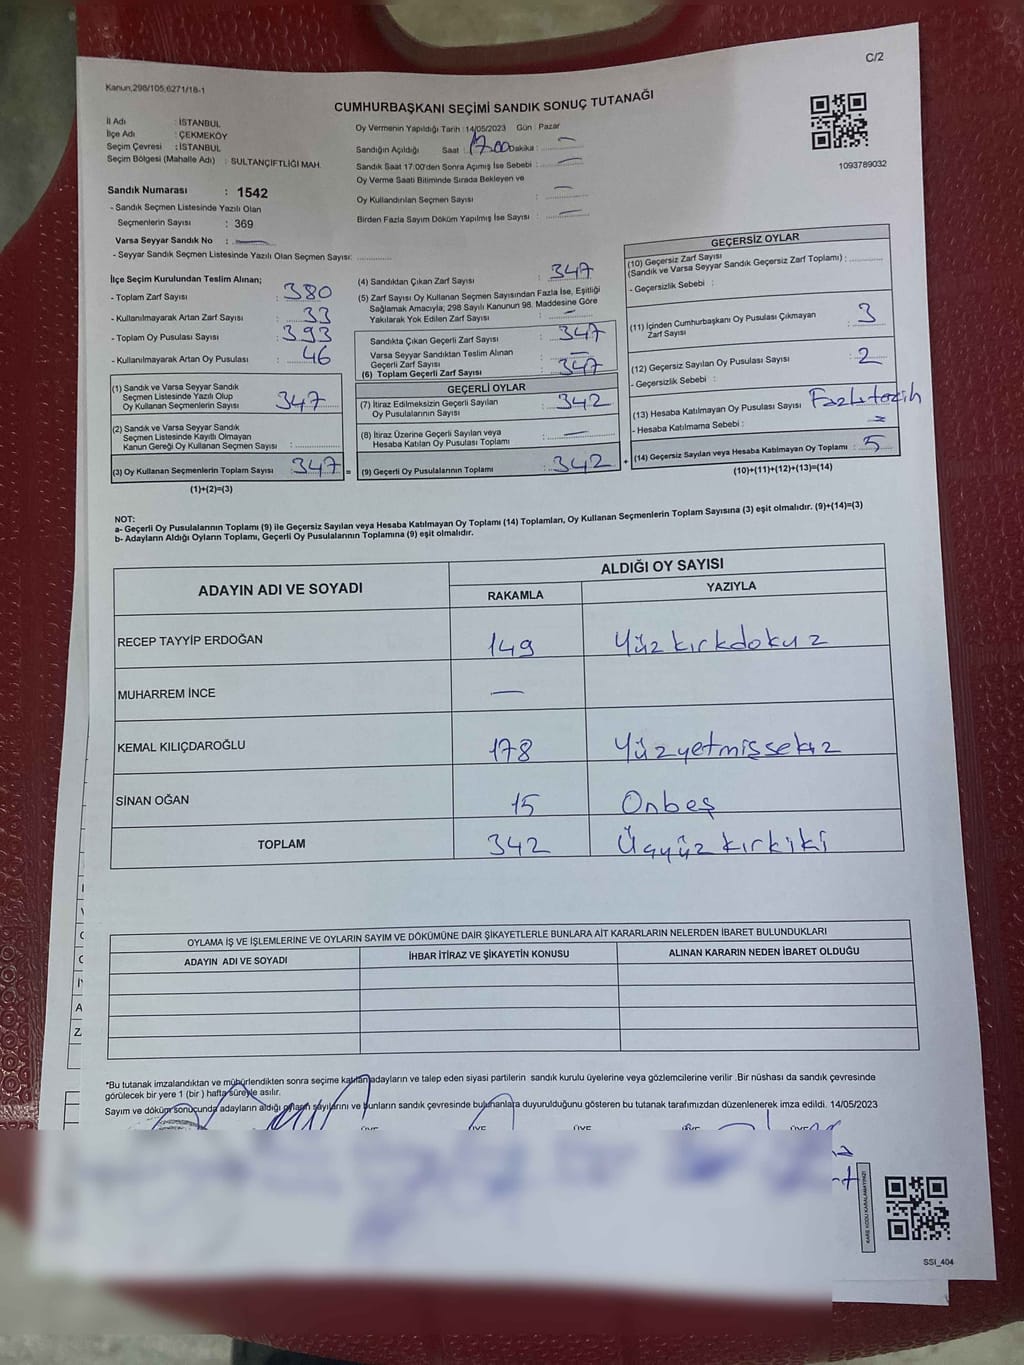 C/2
Kanun,298/105;6271/18-1
CUMHURBAŞKANI SEÇİMİ SANDIK SONUÇ TUTANAĞI
İl Adı : İSTANBUL
İlçe Adı : ÇEKMEKÖY
Seçim Çevresi : İSTANBUL
Seçim Bölgesi (Mahalle Adı) : SULTANÇİFTLİĞİ MAH.
Sandık Numarası : 1542
- Sandık Seçmen Listesinde Yazılı Olan
Seçmenlerin Sayısı : 369
Varsa Seyyar Sandık No : —
- Seyyar Sandık Seçmen Listesinde Yazılı Olan Seçmen Sayısı: ..............
Oy Vermenin Yapıldığı Tarih :14/05/2023 Gün : Pazar
Sandığın Açıldığı Saat : 17.00 Dakika : —
Sandık Saat 17:00'den Sonra Açımış İse Sebebi : —
Oy Verme Saati Bitiminde Sırada Bekleyen ve
Oy Kullandırılan Seçmen Sayısı : —
Birden Fazla Sayım Döküm Yapılmış İse Sayısı : —
1093789032
İlçe Seçim Kurulundan Teslim Alınan;
- Toplam Zarf Sayısı : 380
- Kullanılmayarak Artan Zarf Sayısı : 33
- Toplam Oy Pusulası Sayısı : 393
- Kullanılmayarak Artan Oy Pusulası : 46
(1) Sandık ve Varsa Seyyar Sandık
Seçmen Listesinde Yazılı Olup
Oy Kullanan Seçmenlerin Sayısı : 347
(2) Sandık ve Varsa Seyyar Sandık
Seçmen Listesinde Kayıtlı Olmayan
Kanun Gereği Oy Kullanan Seçmen Sayısı : ..............
(3) Oy Kullanan Seçmenlerin Toplam Sayısı : 347 =
(1)+(2)=(3)
(4) Sandıktan Çıkan Zarf Sayısı : 347
(5) Zarf Sayısı Oy Kullanan Seçmen Sayısından Fazla İse, Eşitliği
Sağlamak Amacıyla; 298 Sayılı Kanunun 98. Maddesine Göre
Yakılarak Yok Edilen Zarf Sayısı : —
Sandıkta Çıkan Geçerli Zarf Sayısı : 347
Varsa Seyyar Sandıktan Teslim Alınan
Geçerli Zarf Sayısı : —
(6) Toplam Geçerli Zarf Sayısı : 347
GEÇERLİ OYLAR
(7) İtiraz Edilmeksizin Geçerli Sayılan
Oy Pusulalarının Sayısı : 342
(8) İtiraz Üzerine Geçerli Sayılan veya
Hesaba Katılan Oy Pusulası Toplamı : —
(9) Geçerli Oy Pusulalarının Toplamı : 342 +
GEÇERSİZ OYLAR
(10) Geçersiz Zarf Sayısı
(Sandık ve Varsa Seyyar Sandık Geçersiz Zarf Toplamı) : ..............
- Geçersizlik Sebebi :
(11) İçinden Cumhurbaşkanı Oy Pusulası Çıkmayan
Zarf Sayısı : 3
(12) Geçersiz Sayılan Oy Pusulası Sayısı : 2
- Geçersizlik Sebebi :
(13) Hesaba Katılmayan Oy Pusulası Sayısı :
- Hesaba Katılmama Sebebi :
(14) Geçersiz Sayılan veya Hesaba Katılmayan Oy Toplamı : 5
(10)+(11)+(12)+(13)=(14)
NOT:
a- Geçerli Oy Pusulalarının Toplamı (9) ile Geçersiz Sayılan veya Hesaba Katılmayan Oy Toplamı (14) Toplamları, Oy Kullanan Seçmenlerin Toplam Sayısına (3) eşit olmalıdır. (9)+(14)=(3)
b- Adayların Aldığı Oyların Toplamı, Geçerli Oy Pusulalarının Toplamına (9) eşit olmalıdır.
ADAYIN ADI VE SOYADI
ALDIĞI OY SAYISI
RAKAMLA YAZIYLA
RECEP TAYYİP ERDOĞAN 149 Yüz kırkdokuz
MUHARREM İNCE —
KEMAL KILIÇDAROĞLU 178 Yüzyetmişsekiz
SİNAN OĞAN 15 Onbeş
TOPLAM 342 Üçyüz kırkiki
OYLAMA İŞ VE İŞLEMLERİNE VE OYLARIN SAYIM VE DÖKÜMÜNE DAİR ŞİKAYETLERLE BUNLARA AİT KARARLARIN NELERDEN İBARET BULUNDUKLARI
ADAYIN ADI VE SOYADI İHBAR İTİRAZ VE ŞİKAYETİN KONUSU ALINAN KARARIN NEDEN İBARET OLDUĞU
*Bu tutanak imzalandıktan ve mühürlendikten sonra seçime katılan adayların ve talep eden siyasi partilerin sandık kurulu üyelerine veya gözlemcilerine verilir .Bir nüshası da sandık çevresinde
görülecek bir yere 1 (bir ) hafta süreyle asılır.
Sayım ve döküm sonucunda adayların aldığı oyların sayılarını ve bunların sandık çevresinde bulunanlara duyurulduğunu gösteren bu tutanak tarafımızdan düzenlenerek imza edildi. 14/05/2023
KARE KODU KARALAMAYINIZ!
SSI_404